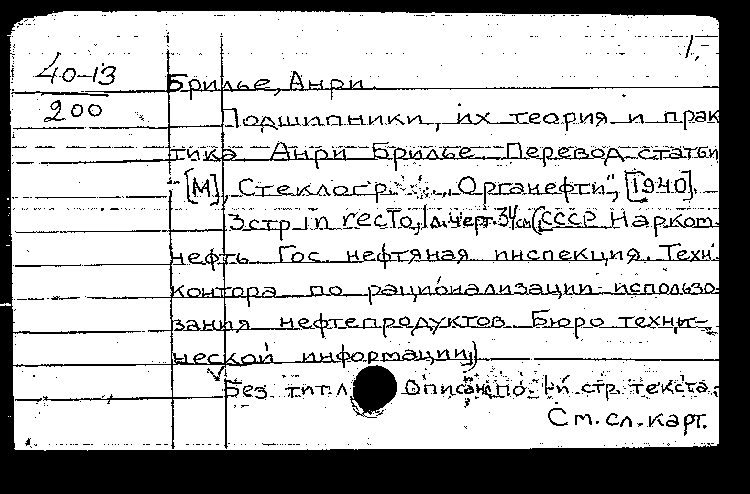 1.-
40-13
200
Брилье, Анри.
Подшипники, их теория и прак
тика Анри Брилье. Перевод статьи
- [М], Стеклогр. „Органефти", [1940].
3 стр in recto, 1 л. черт. 34 см (СССР Нарком-
нефть Гос нефтяная инспекция. Техн.
контора по рационализации использо-
зания нефтепродуктов Бюро техни-
ческой информации)
Без тит. л Описано по 1-й стр. текста.
См. сл. карт.